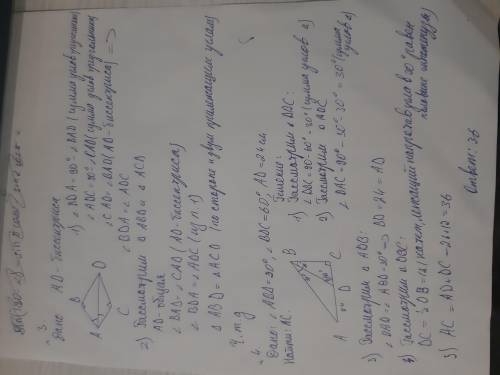 № 3.
Дано: AD - биссектриса
A B C D
1) ∠BDA = 90° - ∠BAD (сумма углов треугольника)
∠ADC = 90° - ∠CAD (сумма углов треугольника)
∠CAD = ∠BAD (AD - биссектриса) =>
∠BDA = ∠ADC
2) Рассмотрим △ABD и △ACD
AD - общая
∠BAD = ∠CAD (AD - биссектриса)
∠BDA = ∠ADC (из п. 1)
△ABD = △ACD (по стороне и двум прилежащим углам)
Ч.т.д
Дано: ∠ABD = 30°, ∠BDC = 60°, AD = 24 см.
Найти: AC
A B C D
Решение:
1) Рассмотрим △BDC:
∠DBC = 90° - 60° = 30° (сумма углов △)
2) Рассмотрим △ABC
∠BAC = 90° - 30° - 30° = 30° (сумма углов △)
3) Рассмотрим △ADB:
∠BAD = ∠ABD = 30° => BD = 24 = AD
4) Рассмотрим △DBC:
DC = ½DB = 12 (катет, лежащий напротив угла в 30° равен половине гипотенузы)
5) AC = AD + DC = 24 + 12 = 36
Ответ: 36